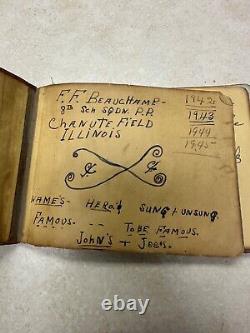 F.F. BEAUCHAMP-
8th Sch SQDN. P.P.
CHANUTE FIELD
ILLINOIS
1942
1943
1944
1945
NAME'S - HERO'S SUNG + UNSUNG
FAMOUS. -- TO BE FAMOUS.
JOHN'S + JOE'S.